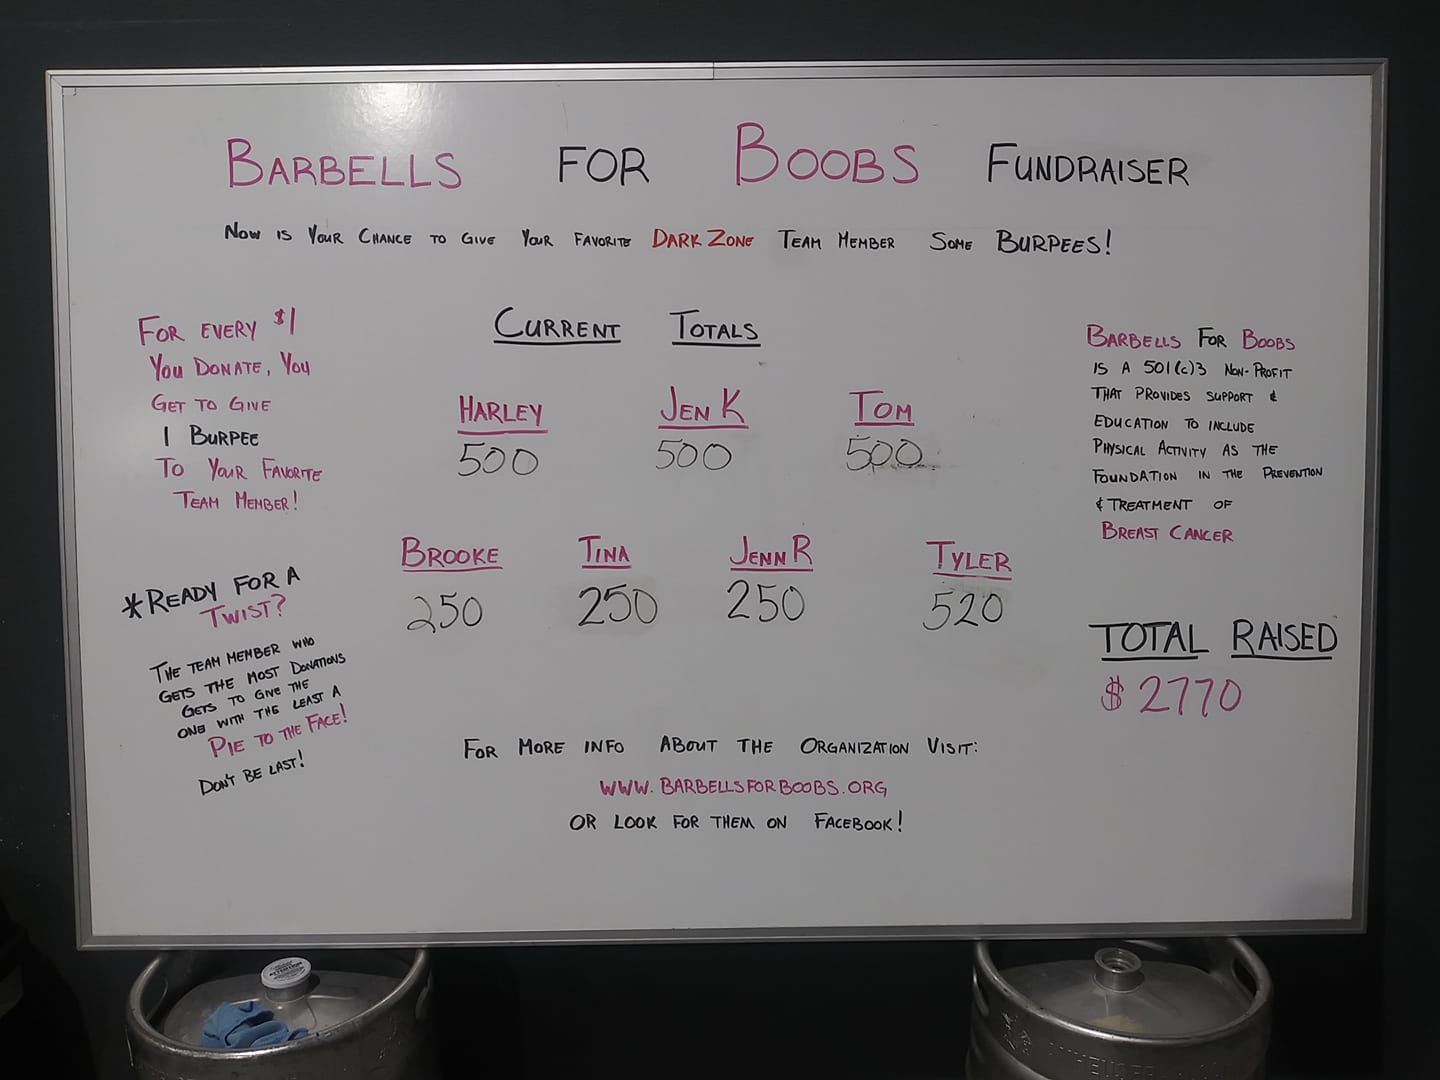 BARBELLS FOR BOOBS FUNDRAISER
NOW IS YOUR CHANCE TO GIVE YOUR FAVORITE DARK ZONE TEAM MEMBER SOME BURPEES!
FOR EVERY $1
YOU DONATE, YOU
GET TO GIVE
1 BURPEE
TO YOUR FAVORITE
TEAM MEMBER!
*READY FOR A
TWIST?
THE TEAM MEMBER WHO
GETS THE MOST DONATIONS
GETS TO GIVE THE
ONE WITH THE LEAST A
PIE TO THE FACE!
DON'T BE LAST!
CURRENT TOTALS
HARLEY JEN K TOM
500 500 500
BROOKE TINA JENN R TYLER
250 250 250 520
FOR MORE INFO ABOUT THE ORGANIZATION VISIT:
WWW.BARBELLSFORBOOBS.ORG
OR LOOK FOR THEM ON FACEBOOK!
BARBELLS FOR BOOBS
IS A 501(c)3 NON-PROFIT
THAT PROVIDES SUPPORT &
EDUCATION TO INCLUDE
PHYSICAL ACTIVITY AS THE
FOUNDATION IN THE PREVENTION
& TREATMENT OF
BREAST CANCER
TOTAL RAISED
$2770